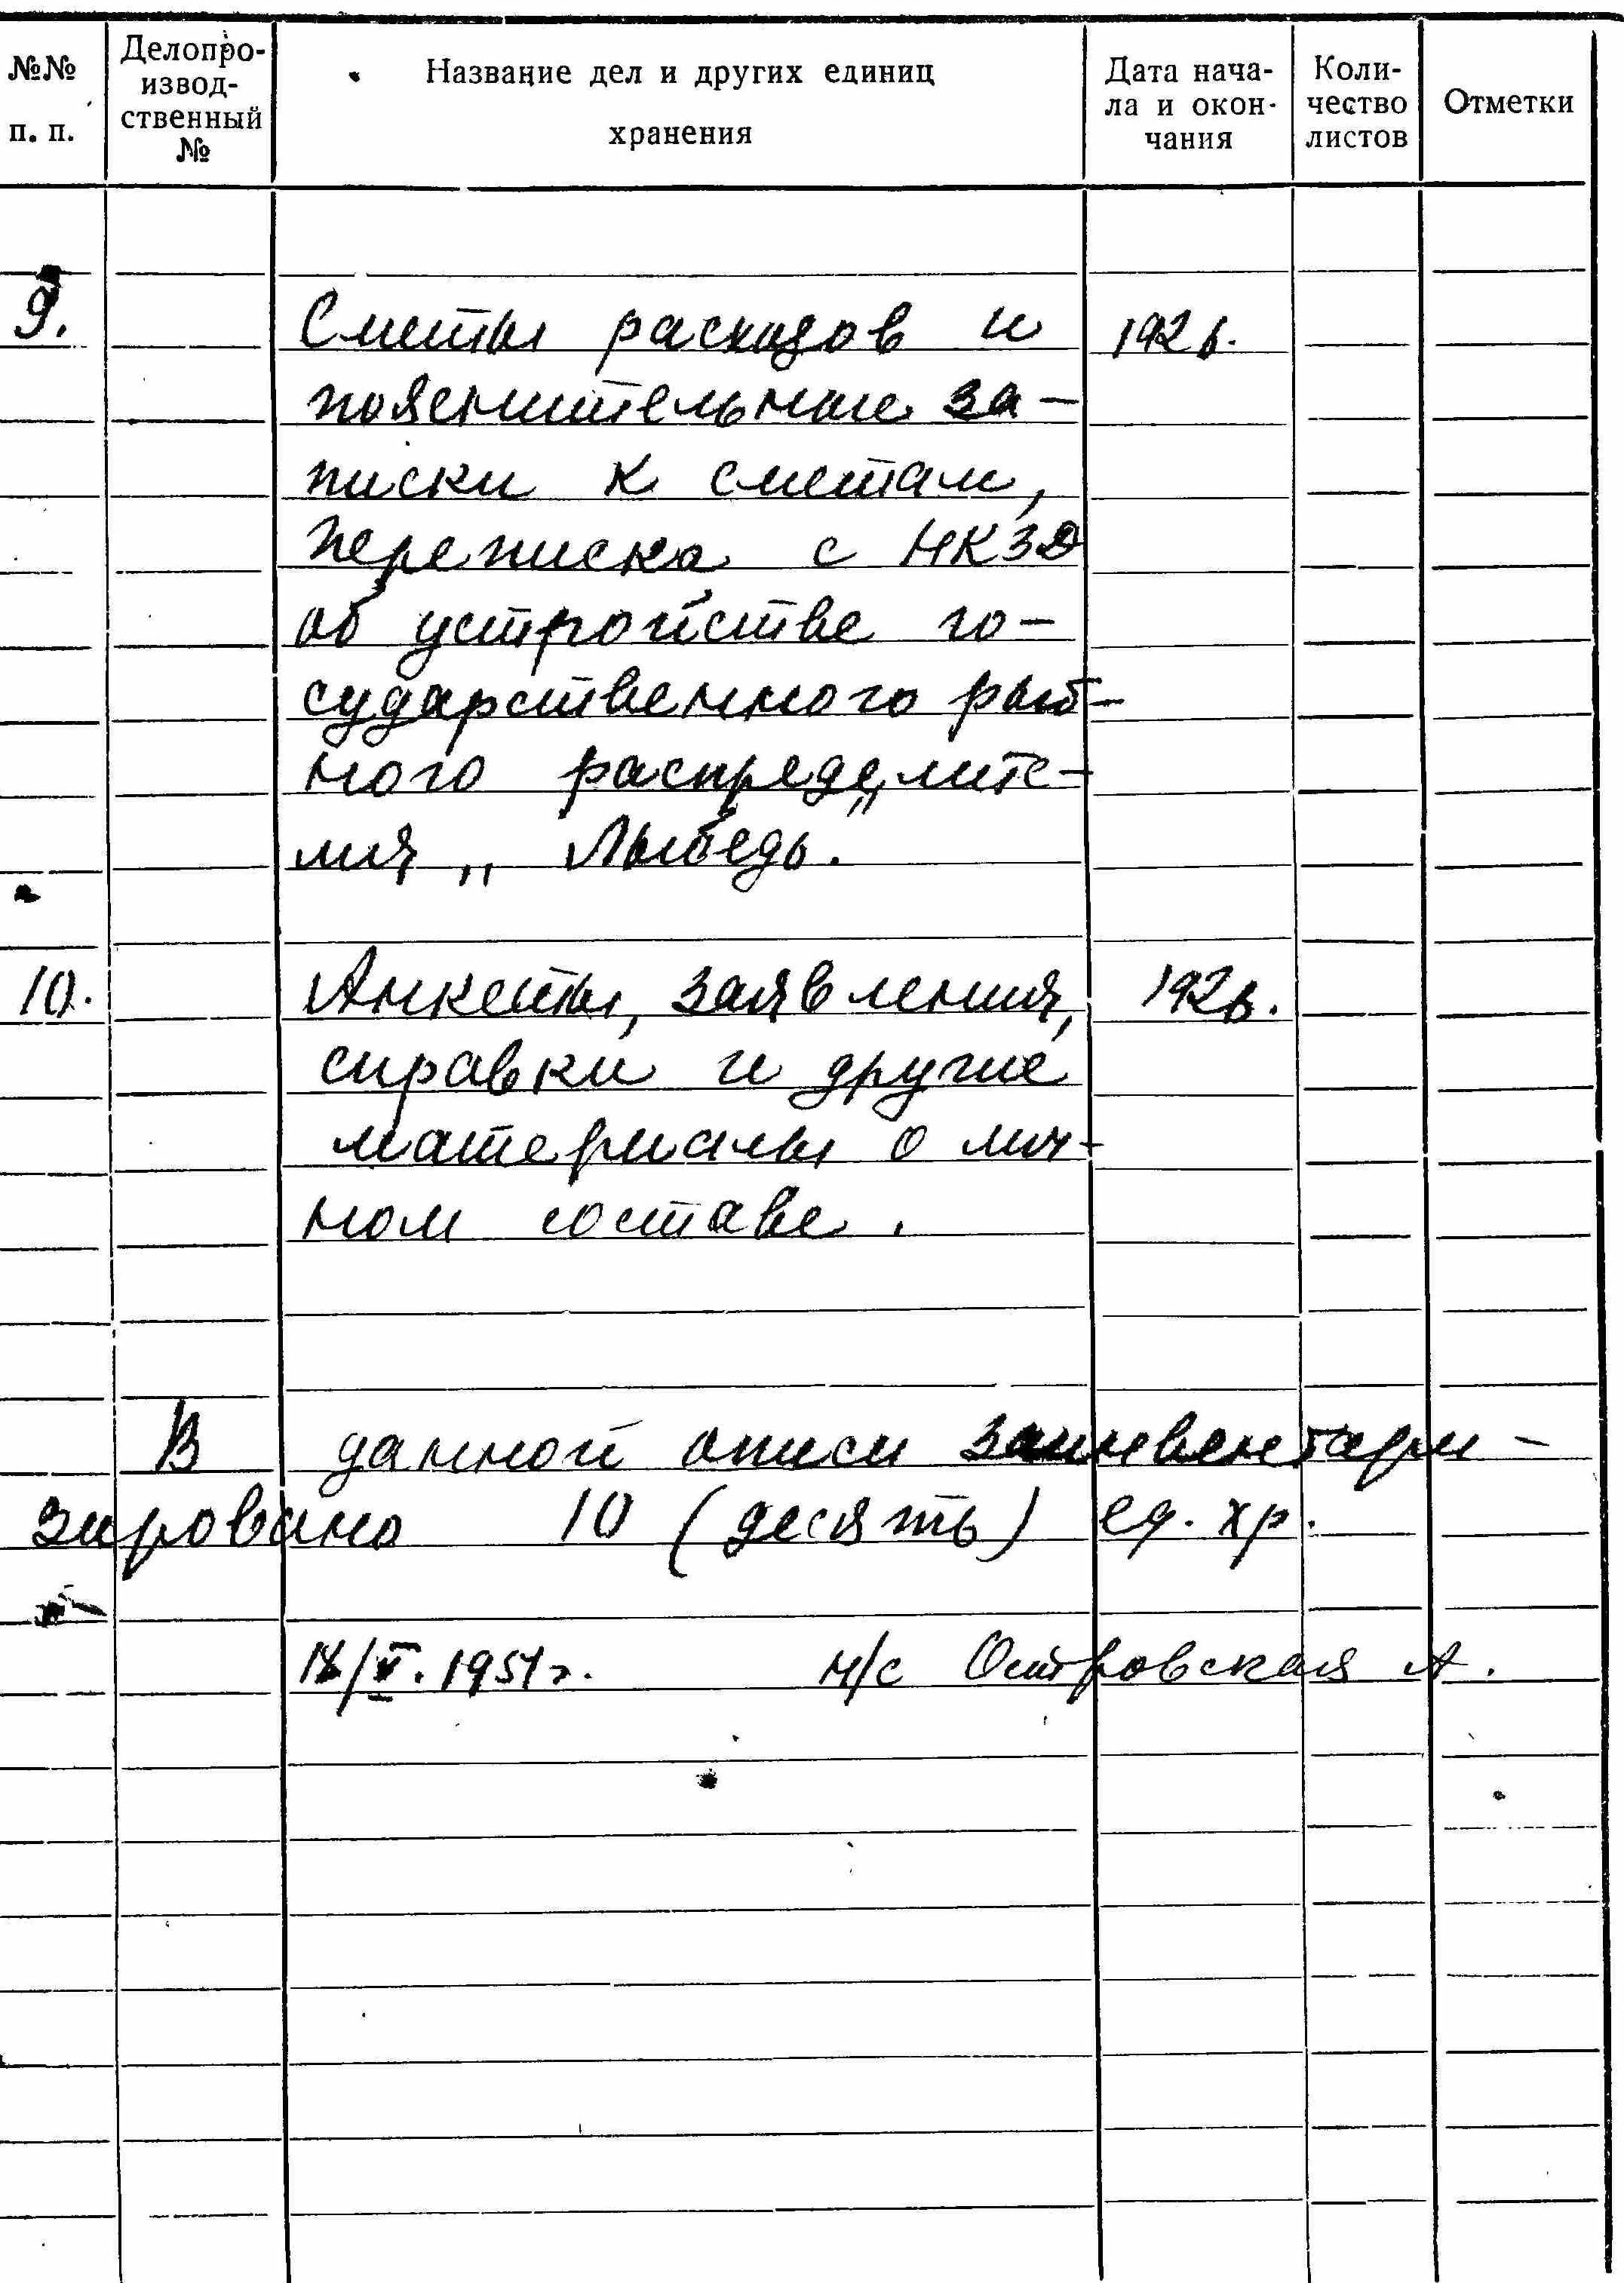 №№ п. п.
Делопро-
извод-
ственный
№
Название дел и других единиц
хранения
Дата нача-
ла и окон-
чания
Коли-
чество
листов
Отметки
9. Сметы расходов и 1926.
пояснительные за-
писки к сметам,
переписка с НКЗД
об устройстве го-
сударственного рыб-
ного распредели­те-
ля „Лыбедь".
10. Анкеты, заявления, 1926.
справки и другие
материалы о лич-
ном составе.
В данной описи заинвентари-
зировано 10 (десять) ед. хр.
1951г. н/с Островская А.